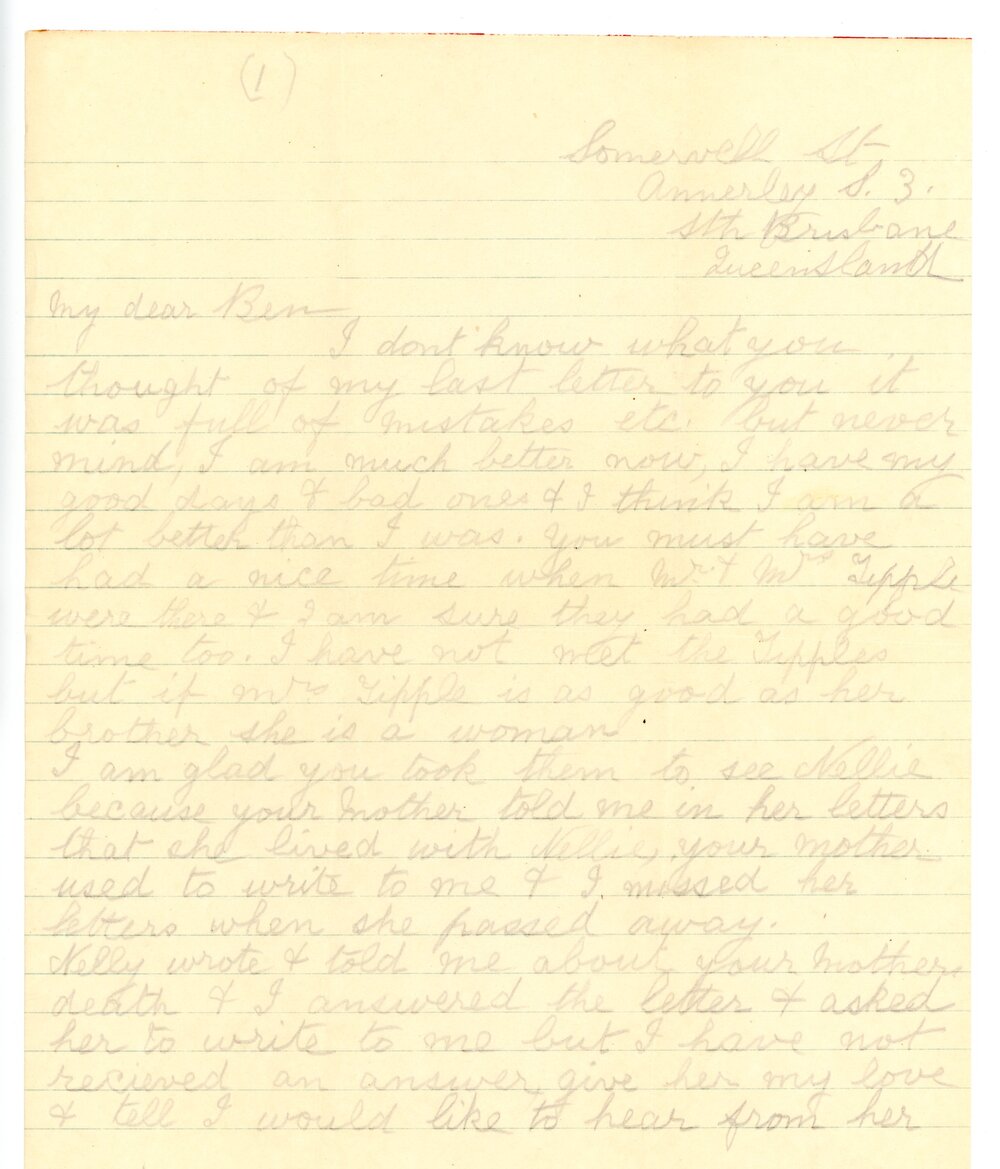 (1)
Somervell St
Annerley S. 3.
Sth Brisbane
Queensland
My dear Ben,
I dont know what you
thought of my last letter to you it
was full of mistakes etc. but never
mind, I am much better now, I have my
good days & bad ones & I think I am a
lot better than I was. you must have
had a nice time when Mr. & Mrs Tipple
were there & I am sure they had a good
time too. I have not met the Tipples
but if Mrs Tipple is as good as her
brother she is a woman
I am glad you took them to see Nellie
because your Mother told me in her letters
that she lived with Nellie, your mother
used to write to me & I missed her
letters when she passed away.
Nelly wrote & told me about your Mothers
death & I answered the letter & asked
her to write to me but I have not
recieved an answer, give her my love
& tell I would like to hear from her